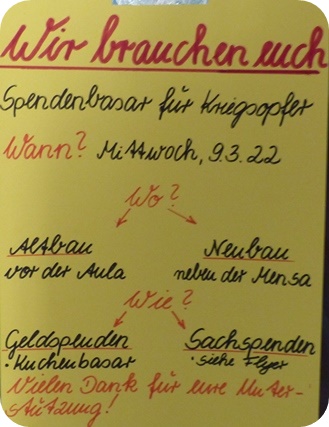 Wir brauchen euch
Spendenbasar für Kriegsopfer
Wann? Mittwoch, 9.3.22
Wo?
Altbau Neubau
vor der Aula neben der Mensa
Wie?
Geldspenden Sachspenden
• Kuchenbasar • siehe Flyer
Vielen Dank für eure Unter-
stützung!